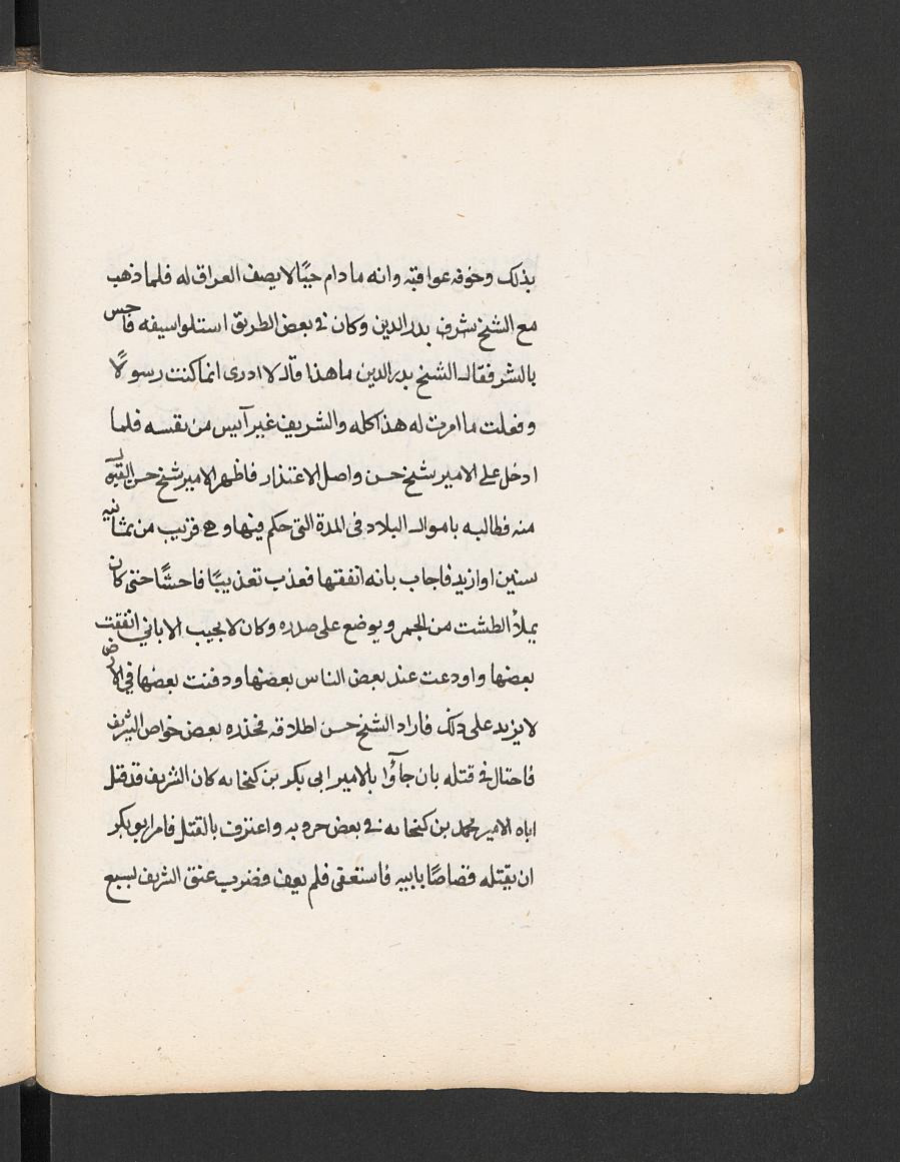 بذلك وخوفه عواقبه وانه مادام حيًا لا يصف العراق له فلما ذهب
مع الشيخ شرف بدر الدين وكان في بعض الطريق استلوا سيفه فاحس
بالشر فقال الشيخ بدر الدين ما هذا قال لا ادرى انما كنت رسولًا
وفعلت ما امرت له هذا كله والشريف غير آيس من نفسه فلما
ادخل على الامير شيخ حسن واصل الاعتذار فاظهر الامير شيخ حسن القبول
منه فطالبه باموال البلاد في المدة التي حكم فيها وهي قريب من ثمانيه
سنين او ازيد فاجاب بانه انفقها فعذب تعذيبًا فاحشًا حتى كان
يملأ الطشت من الجمر ويوضع على صدره وكان لا يجيب الا باني انفقت
بعضها واودعت عند بعض الناس بعضها ودفنت بعضها في الارض
لا يزيد على ذلك فاراد الشيخ حسن اطلاقه فحذره بعض خواص الشريف
فاحتال في قتله بان جاؤا بالامير ابى بكر بن كنجايه كان الشريف قد قتل
اباه الامير محمد بن كنجايه في بعض حروبه واعترف بالقتل فامر ابو بكر
ان يقتله قصاصًا بابيه فاستعفى فلم يعف فضرب عنق الشريف لسبع